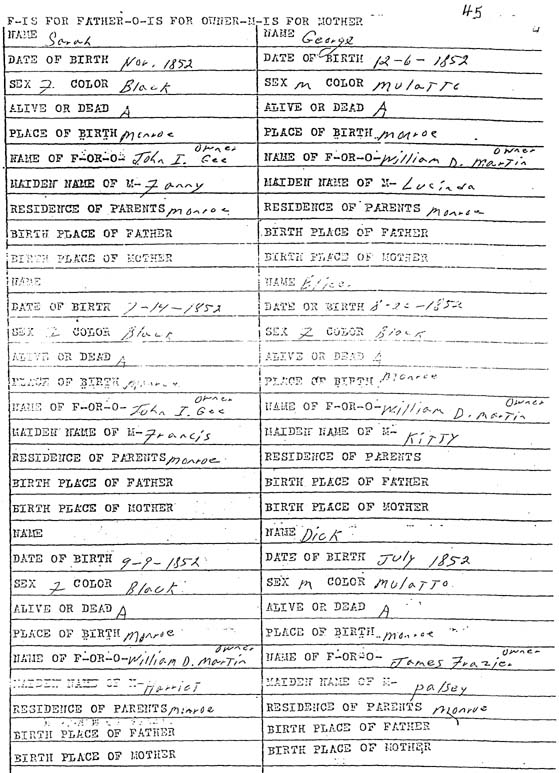 45
F-IS FOR FATHER-O-IS FOR OWNER-M-IS FOR MOTHER
NAME Sarah
DATE OF BIRTH Nov. 1852
SEX F COLOR Black
ALIVE OR DEAD A
PLACE OF BIRTH Monroe
Owner
NAME OF F-OR-O- John I. Gee
MAIDEN NAME OF M- Fanny
RESIDENCE OF PARENTS Monroe
BIRTH PLACE OF FATHER
BIRTH PLACE OF MOTHER
NAME
DATE OF BIRTH 7-14-1852
SEX F COLOR Black
ALIVE OR DEAD A
PLACE OF BIRTH Monroe
Owner
NAME OF F-OR-O- John I. Gee
MAIDEN NAME OF M- Francis
RESIDENCE OF PARENTS Monroe
BIRTH PLACE OF FATHER
BIRTH PLACE OF MOTHER
NAME
DATE OF BIRTH 9-9-1852
SEX F COLOR Black
ALIVE OR DEAD A
PLACE OF BIRTH Monroe
Owner
NAME OF F-OR-O- William D. Martin
MAIDEN NAME OF M- Harriet
RESIDENCE OF PARENTS Monroe
BIRTH PLACE OF FATHER
BIRTH PLACE OF MOTHER
NAME George
DATE OF BIRTH 12-6-1852
SEX M COLOR Mulatto
ALIVE OR DEAD A
PLACE OF BIRTH Monroe
Owner
NAME OF F-OR-O- William D. Martin
MAIDEN NAME OF M- Lucinda
RESIDENCE OF PARENTS Monroe
BIRTH PLACE OF FATHER
BIRTH PLACE OF MOTHER
NAME
DATE OR BIRTH 8-22-1852
SEX F COLOR Black
ALIVE OR DEAD A
PLACE OF BIRTH Monroe
Owner
NAME OF F-OR-O- William D. Martin
MAIDEN NAME OF M- Kitty
RESIDENCE OF PARENTS
BIRTH PLACE OF FATHER
BIRTH PLACE OF MOTHER
NAME Dick
DATE OF BIRTH July 1852
SEX M COLOR Mulatto
ALIVE OR DEAD A
PLACE OF BIRTH Monroe
Owner
NAME OF F-OR-O- James Frazier
MAIDEN NAME OF M- Palsey
RESIDENCE OF PARENTS Monroe
BIRTH PLACE OF FATHER
BIRTH PLACE OF MOTHER